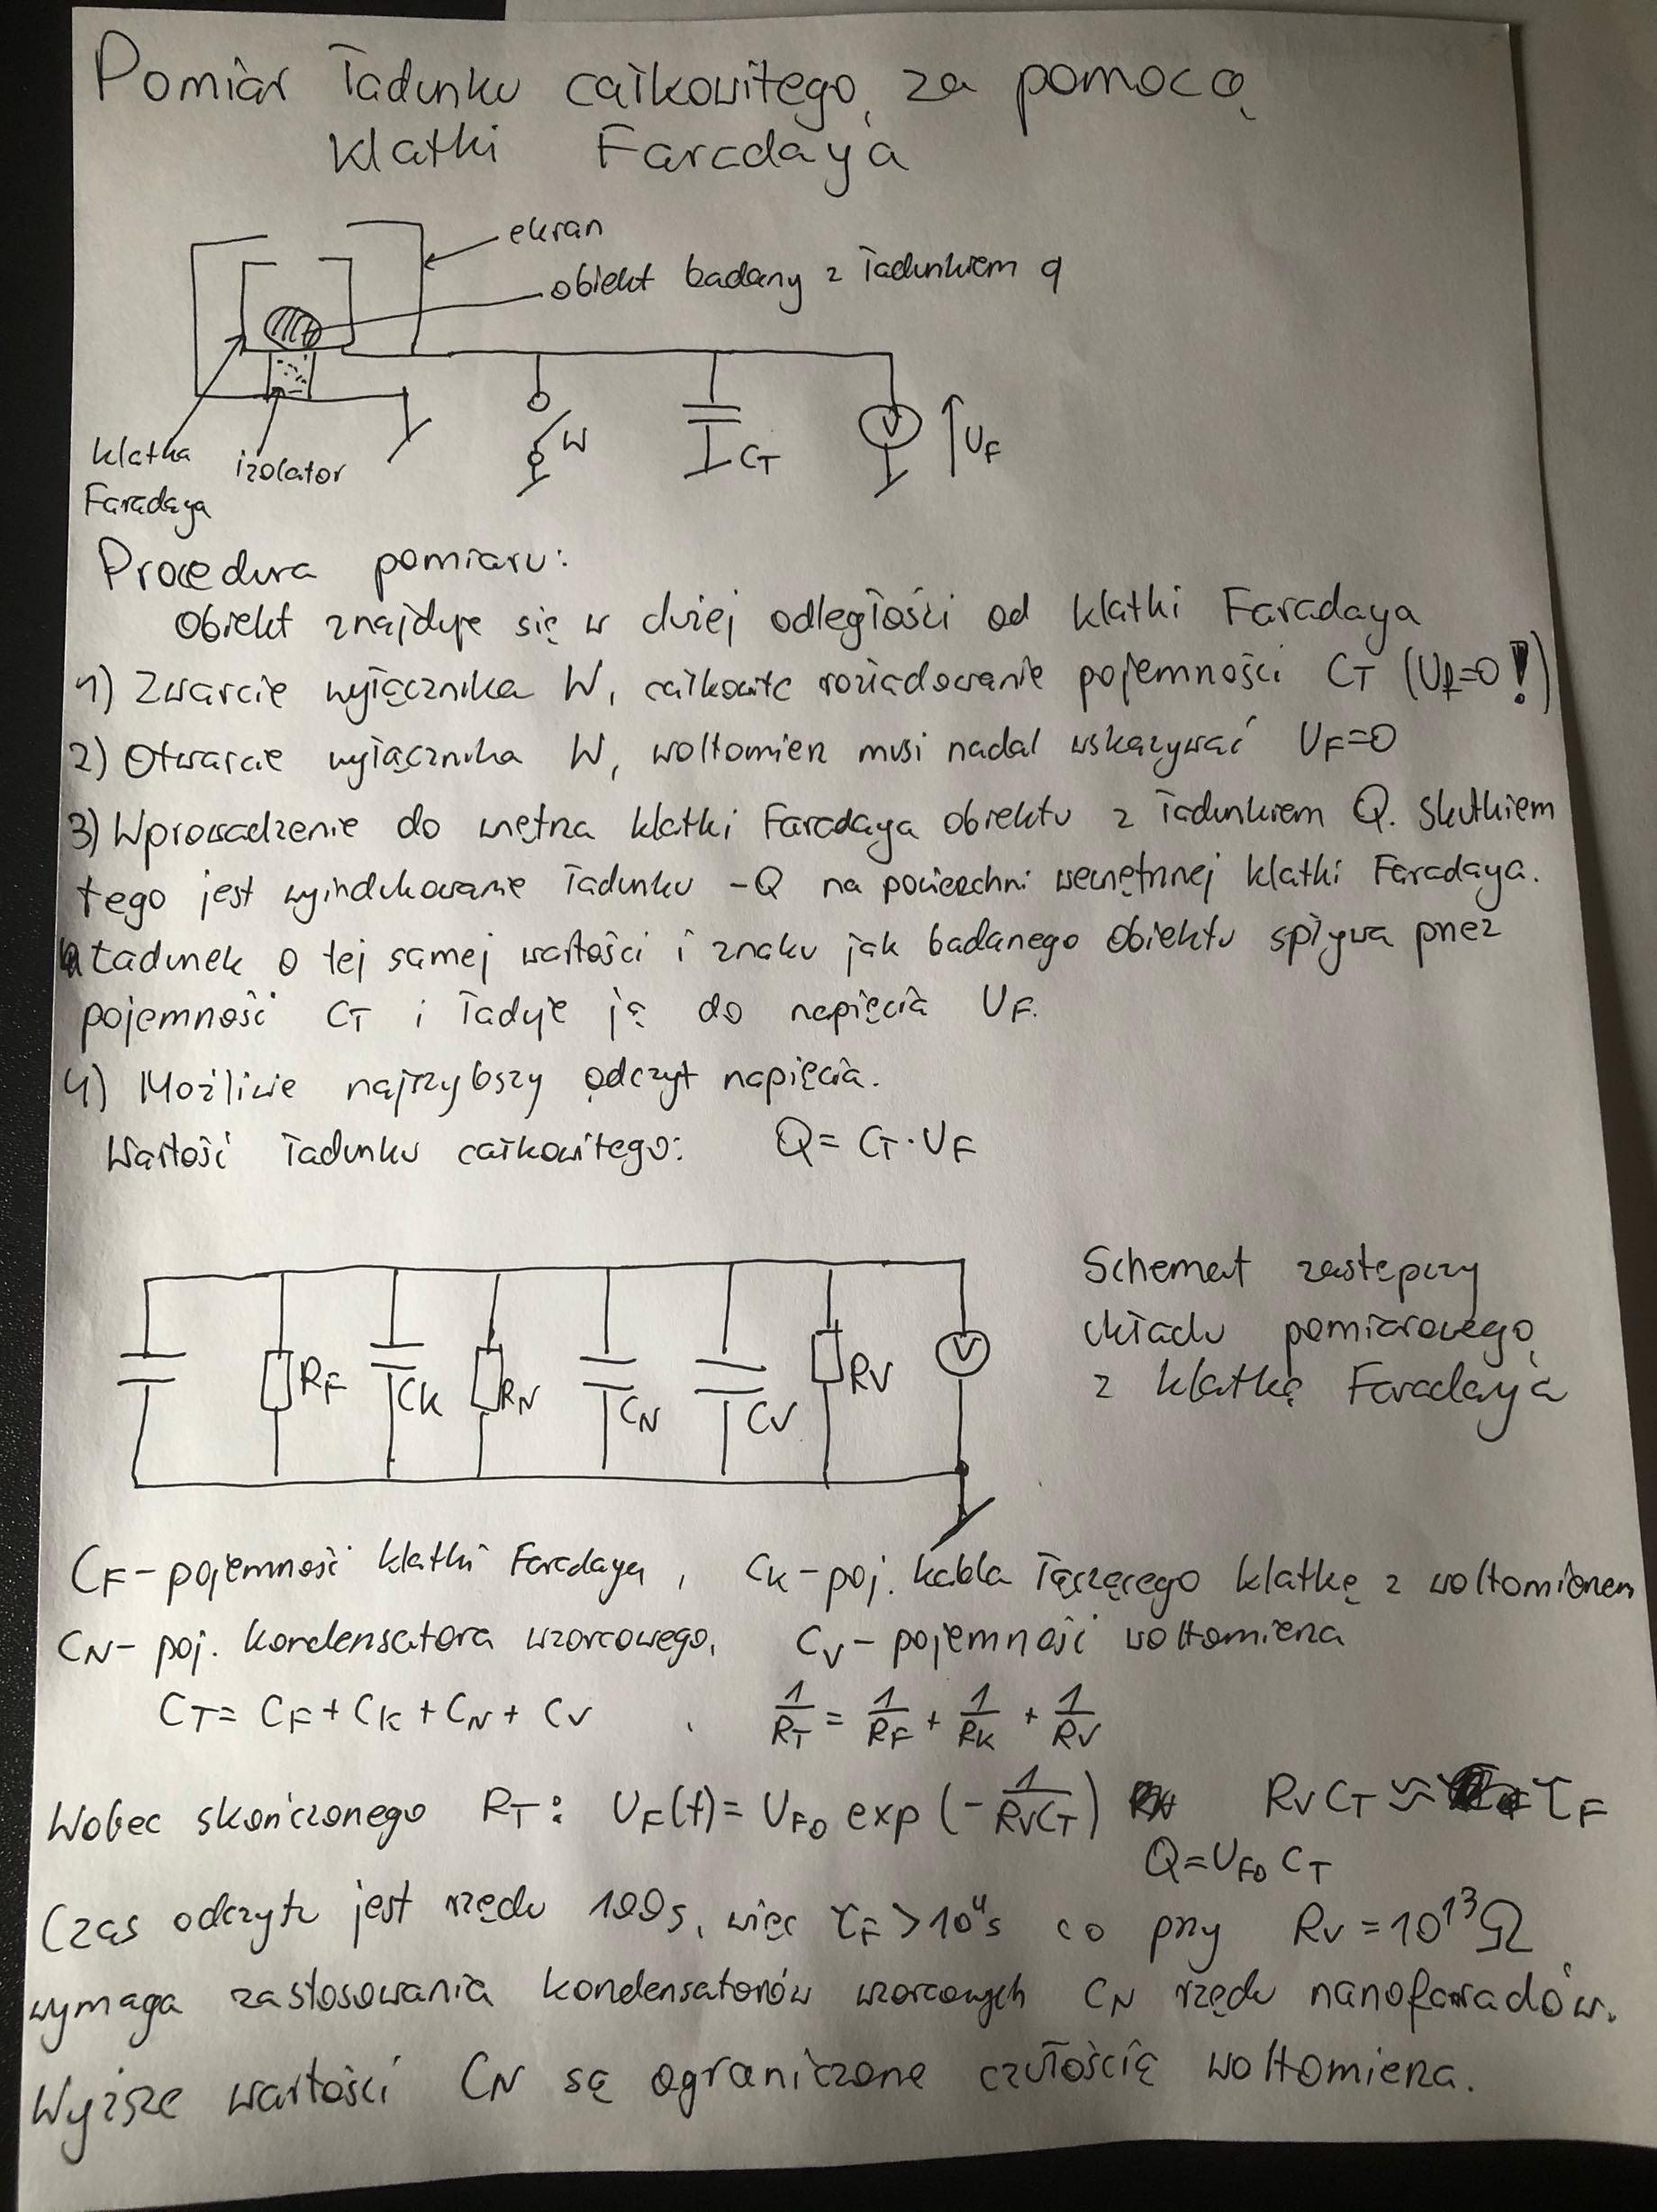 Pomiar ładunku całkowitego za pomocą
klatki Faradaya
ekran
obiekt badany z ładunkiem q
klatka
Faradaya
izolator
W
CT
V
UF
Procedura pomiaru:
Obiekt znajduje się w dużej odległości od klatki Faradaya
1) Zwarcie wyłącznika W, całkowite rozładowanie pojemności CT (UF=0!)
2) Otwarcie wyłącznika W, woltomierz musi nadal wskazywać UF=0
3) Wprowadzenie do wnętrza klatki Faradaya obiektu z ładunkiem Q. Skutkiem
tego jest wyindukowanie ładunku -Q na powierzchni wewnętrznej klatki Faradaya.
Ładunek o tej samej wartości i znaku jak badanego obiektu spływa przez
pojemność CT i ładuje ją do napięcia UF.
4) Możliwie najszybszy odczyt napięcia.
Wartość ładunku całkowitego: Q = CT · UF
RF
CK
RN
CN
CV
RV
V
Schemat zastępczy
układu pomiarowego
z klatką Faradaya
CF - pojemność klatki Faradaya, CK - poj. kabla łączącego klatkę z woltomierzem
CN - poj. kondensatora wzorcowego, CV - pojemność woltomierza
CT = CF + CK + CN + CV , 1/RT = 1/RF + 1/RK + 1/RV
Wobec skończonego RT: UF(t) = UF0 exp (- 1/RVCT) RVCT ≈ τF
Q = UF0 CT
Czas odczytu jest rzędu 100s, więc τF > 10⁴s co przy RV = 10¹³Ω
wymaga zastosowania kondensatorów wzorcowych CN rzędu nanofaradów.
Wyższe wartości CN są ograniczone czułością woltomierza.